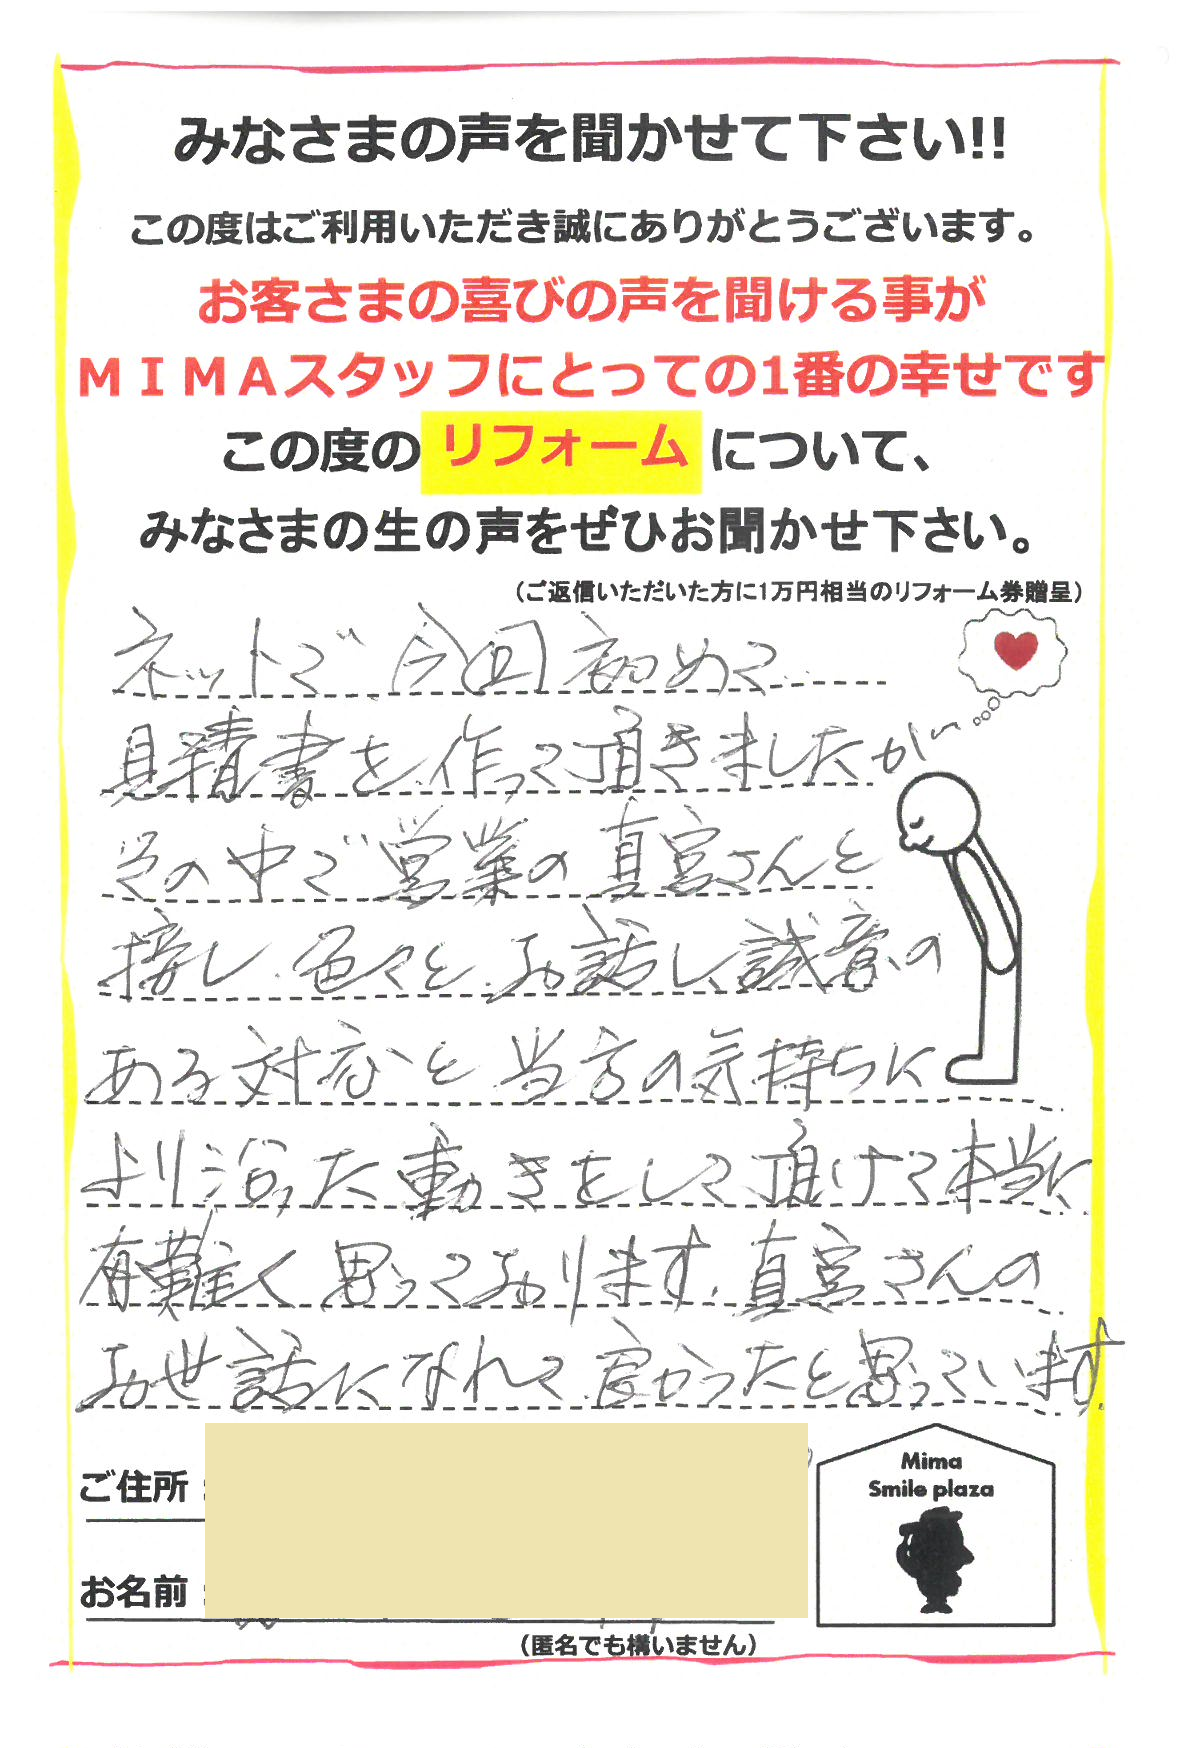 みなさまの声を聞かせて下さい!!
この度はご利用いただき誠にありがとうございます。
お客さまの喜びの声を聞ける事が
ＭＩＭＡスタッフにとっての1番の幸せです
この度の リフォーム について、
みなさまの生の声をぜひお聞かせ下さい。
（ご返信いただいた方に1万円相当のリフォーム券贈呈）
ネットで今回初めて
見積書を作って頂きましたが
その中で営業の真宮さんと
接し、色々とお話し、誠意の
ある対応と当方の気持ちに
より沿った動きをして頂けて本当に
有難く思っております。真宮さんの
お世話になれて良かったと思っています。
ご住所：
お名前：
（匿名でも構いません）
Mima
Smile plaza